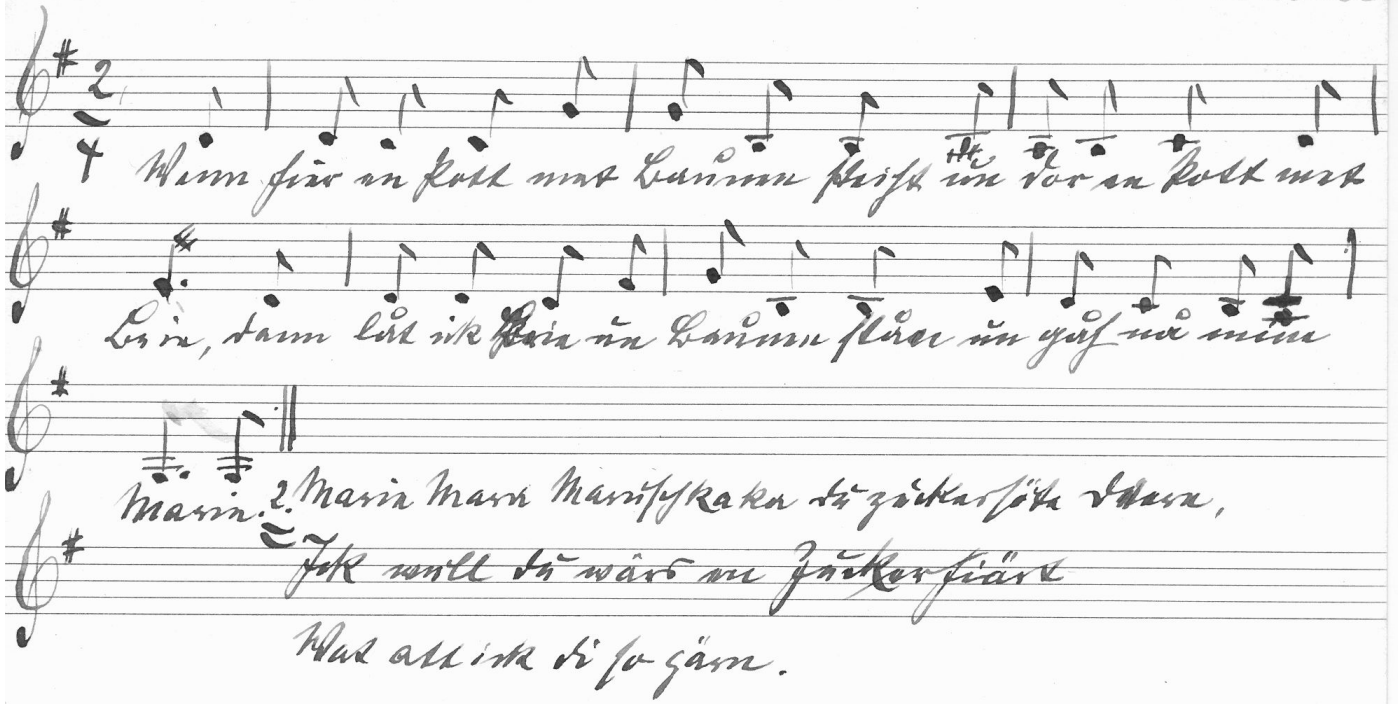 2
4
Wenn hier en Pott met Baunen steiht un dor en Pott met
Brie, dann låt ik Brie un Baunen ståen un gåh nå mine
Marie. 2. Marie Mara Maruschkaka du zuckersöte Deern,
Ick wull du wärs en Zuckerpiärt
Wat att ick di so gärn.